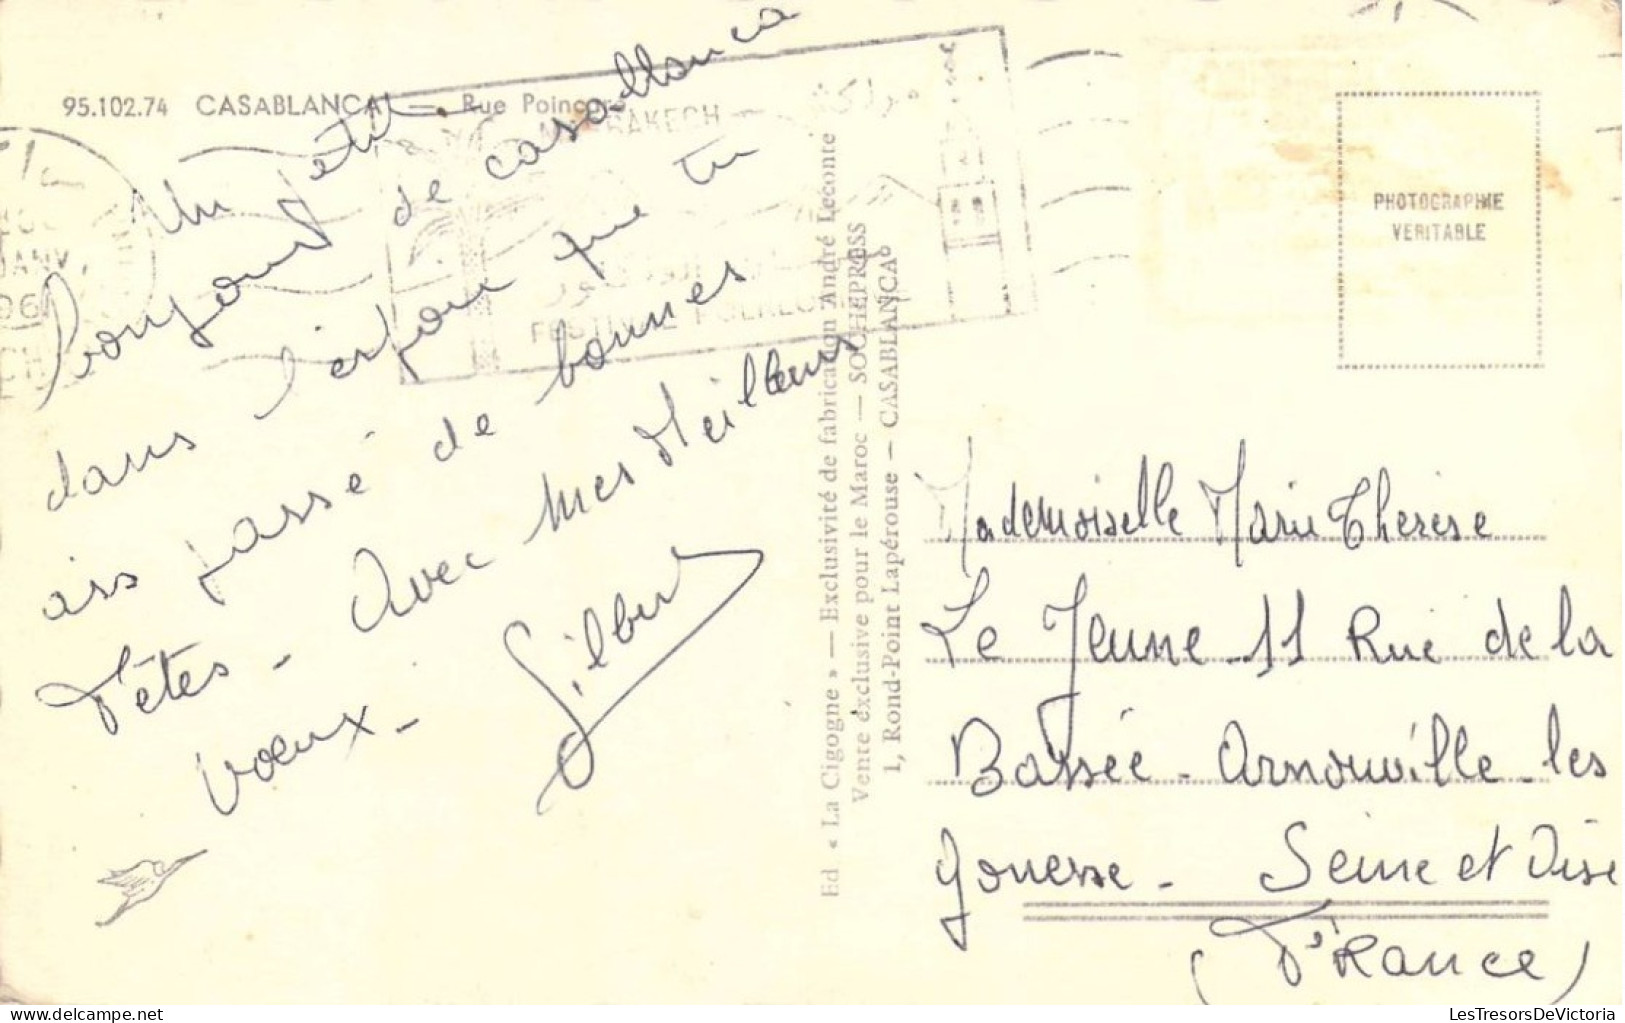 95.102.74 CASABLANCA — Rue Poincaré
MARRAKECH — مراكش
FESTIVAL FOLKLORIQUE
JANV.
196
Un petit
bonjour de casablanca
dans l'espoir que tu
ais passé de bonnes
Fêtes - Avec mes Meilleurs
voeux -
Gilbert
Ed « La Cigogne » — Exclusivité de fabrication André Leconte
Vente éxclusive pour le Maroc — SOCHEPRESS
1, Rond-Point Lapérouse — CASABLANCA
PHOTOGRAPHIE
VERITABLE
Mademoiselle Marie Therèse
Le Jeune 11 Rue de la
Bassée - Arnouville - les
Gonesse - Seine et Oise
(France)
LesTresorsDeVictoria